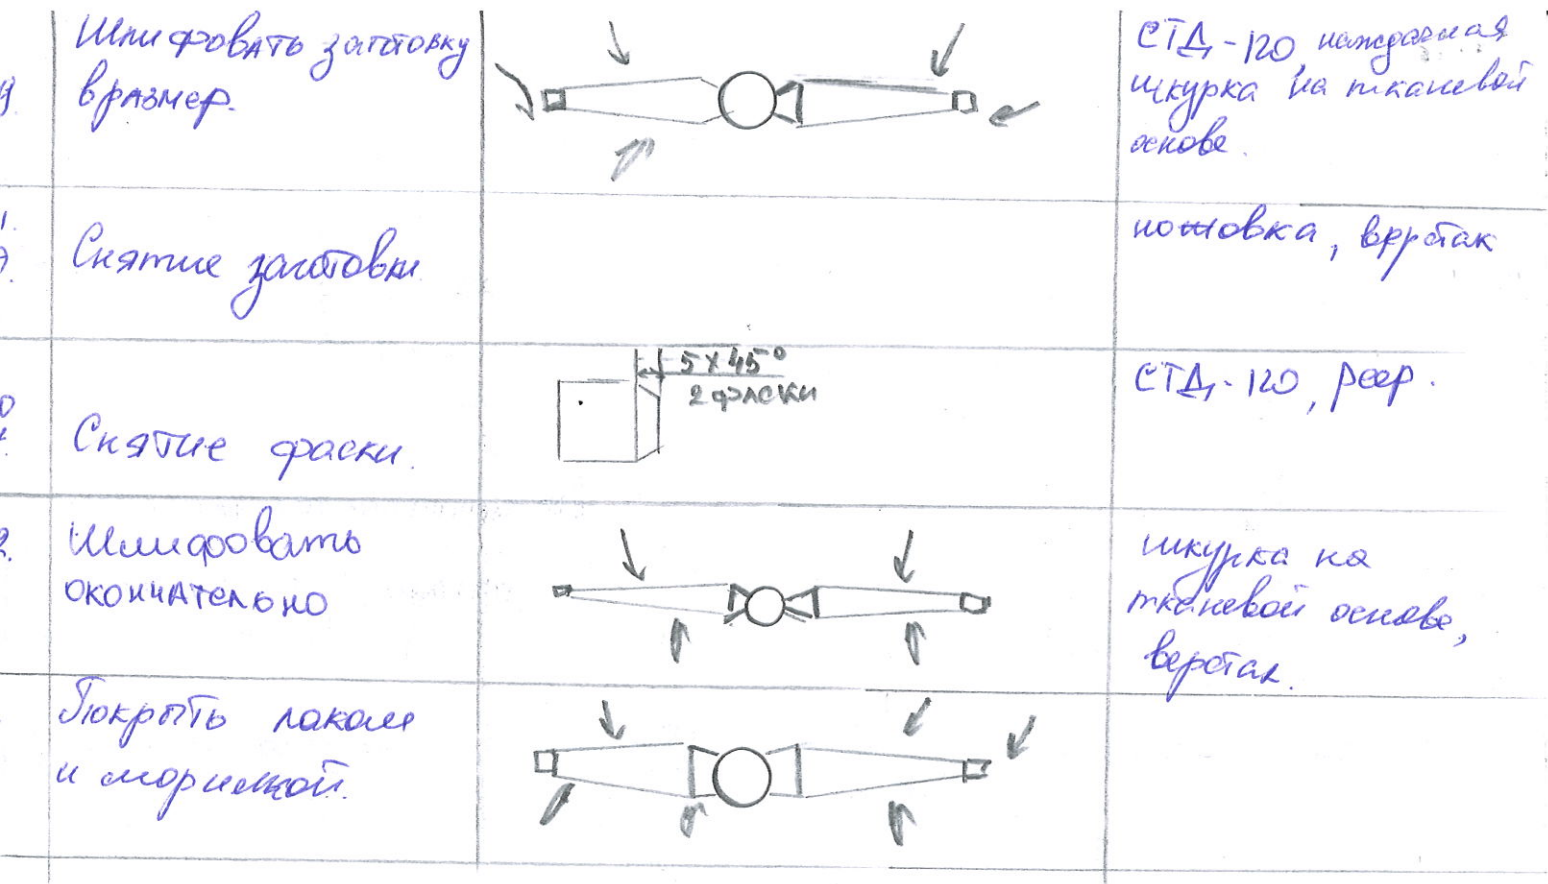 Шлифовать заготовку
в размер.
СТД-120, наждачная
шкурка на тканевой
основе.
Снятие заготовки
ножовка, верстак
5 х 45°
2 фаски
Снятие фаски.
СТД-120, реер.
Шлифовать
окончательно
шкурка на
тканевой основе,
верстак.
Покрыть лаком
и морилкой.